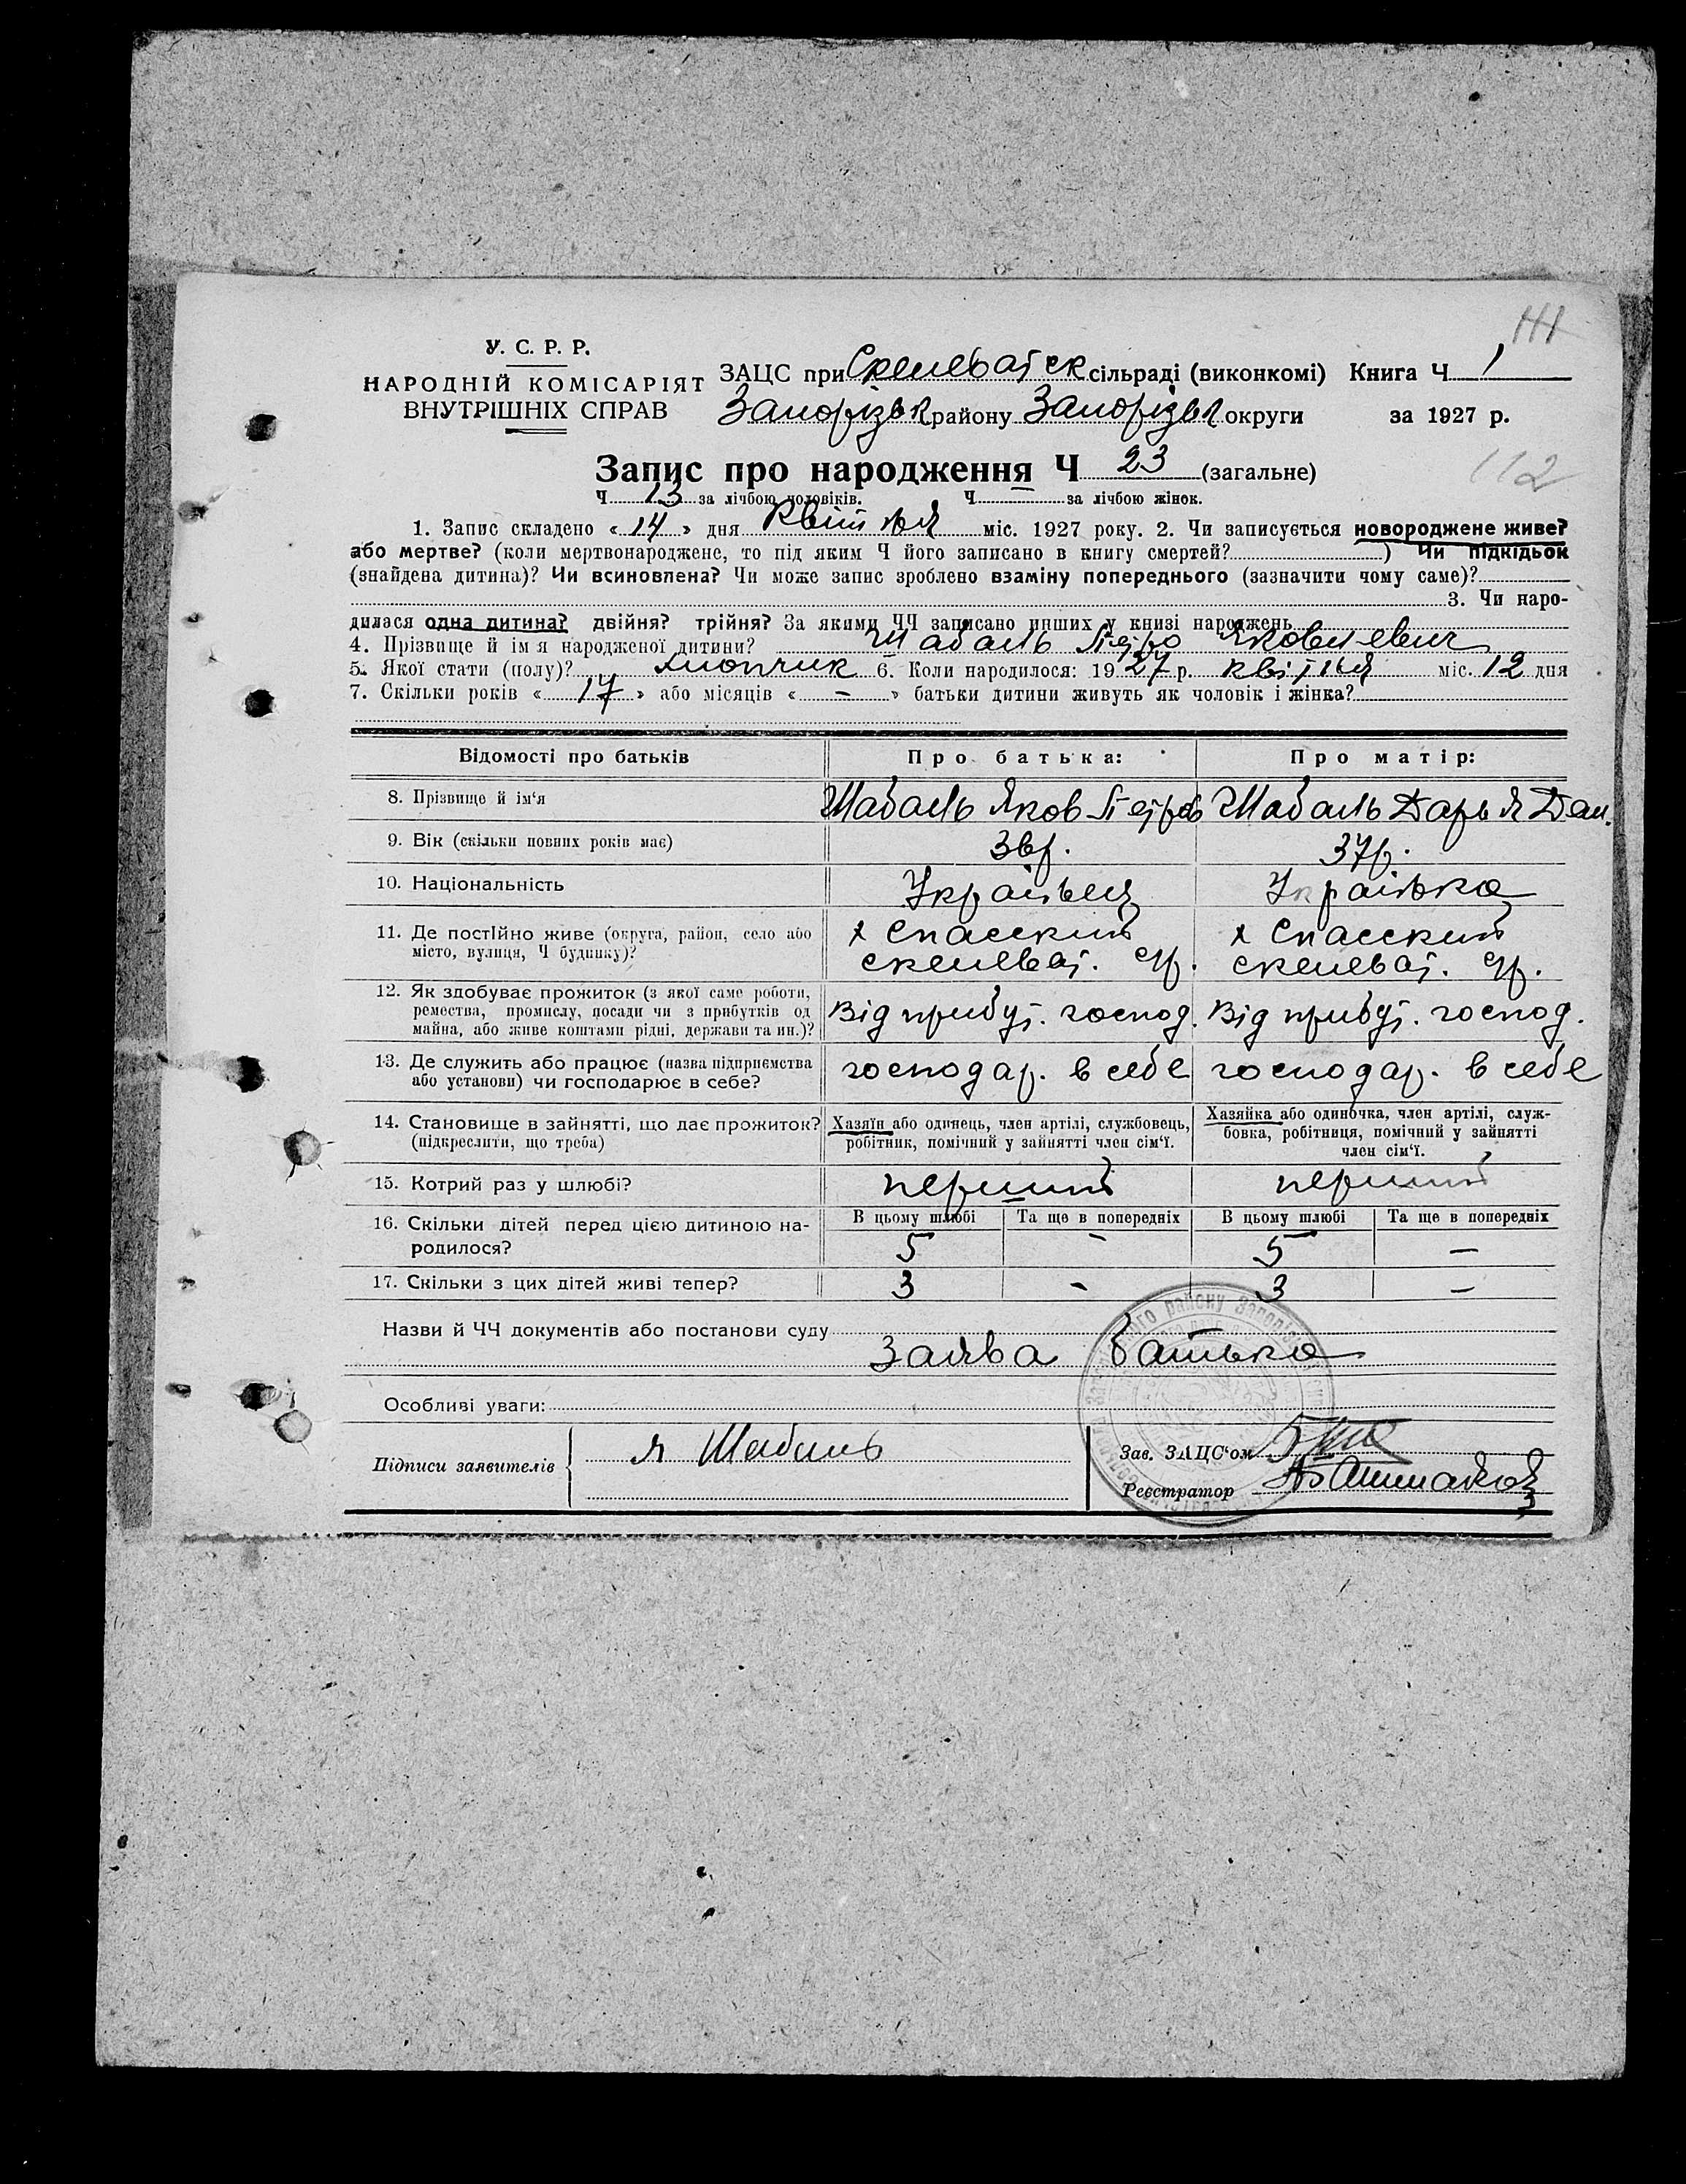 111
У. С. Р. Р.
НАРОДНІЙ КОМІСАРІЯТ
ВНУТРІШНІХ СПРАВ
ЗАЦС при Скелеватск сільраді (виконкомі) Книга Ч 1
Запорізьк району Запорізьк округи за 1927 р.
Запис про народження Ч 23 (загальне)
112
Ч 13 за лічбою чоловіків. Ч — за лічбою жінок.
1. Запис складено « 14 » дня Квітня міс. 1927 року. 2. Чи записується новороджене живе?
або мертве? (коли мертвонароджене, то під яким Ч його записано в книгу смертей? ) Чи підкідьок
(знайдена дитина)? Чи всиновлена? Чи може запис зроблено взаміну попереднього (зазначити чому саме)?
3. Чи наро-
дилася одна дитина? двійня? трійня? За якими ЧЧ записано инших у книзі народжень
4. Прізвище й ім'я народженої дитини? Шабаль Петро Яковлевич
5. Якої стати (полу)? хлопчик 6. Коли народилося: 19 27 р. квітня міс. 12 дня
7. Скільки років « 17 » або місяців « - » батьки дитини живуть як чоловік і жінка?
Відомості про батьків Про батька: Про матір:
8. Прізвище й ім'я Шабаль Яков Петров Шабаль Дарья Дан.
9. Вік (скільки повних років має) 36р. 37р.
10. Національність Українец Українка
11. Де постійно живе (округа, район, село або
місто, вулиця, Ч будинку)?
х Спасский
скелеват. с/р.
х Спасский
скелеват. с/р.
12. Як здобуває прожиток (з якої саме роботи,
ремества, промислу, посади чи з прибутків од
майна, або живе коштами рідні, держави та ин.)?
Від прибут. господ. Від прибут. господ.
13. Де служить або працює (назва підприємства
або установи) чи господарює в себе?
господар. в себе господар. в себе
14. Становище в зайнятті, що дає прожиток?
(підкреслити, що треба)
Хазяїн або одинець, член артілі, службовець,
робітник, помічний у зайнятті член сім'ї.
Хазяйка або одиночка, член артілі, служ-
бовка, робітниця, помічний у зайнятті
член сім'ї.
15. Котрий раз у шлюбі? перший перший
16. Скільки дітей перед цією дитиною на-
родилося?
В цьому шлюбі Та ще в попередніх В цьому шлюбі Та ще в попередніх
5 - 5 —
17. Скільки з цих дітей живі тепер? 3 - 3 —
Назви й ЧЧ документів або постанови суду
Заява батька
Особливі уваги:
Підписи заявителів Я Шабаль
Зав. ЗАЦС'ом
Реєстратор